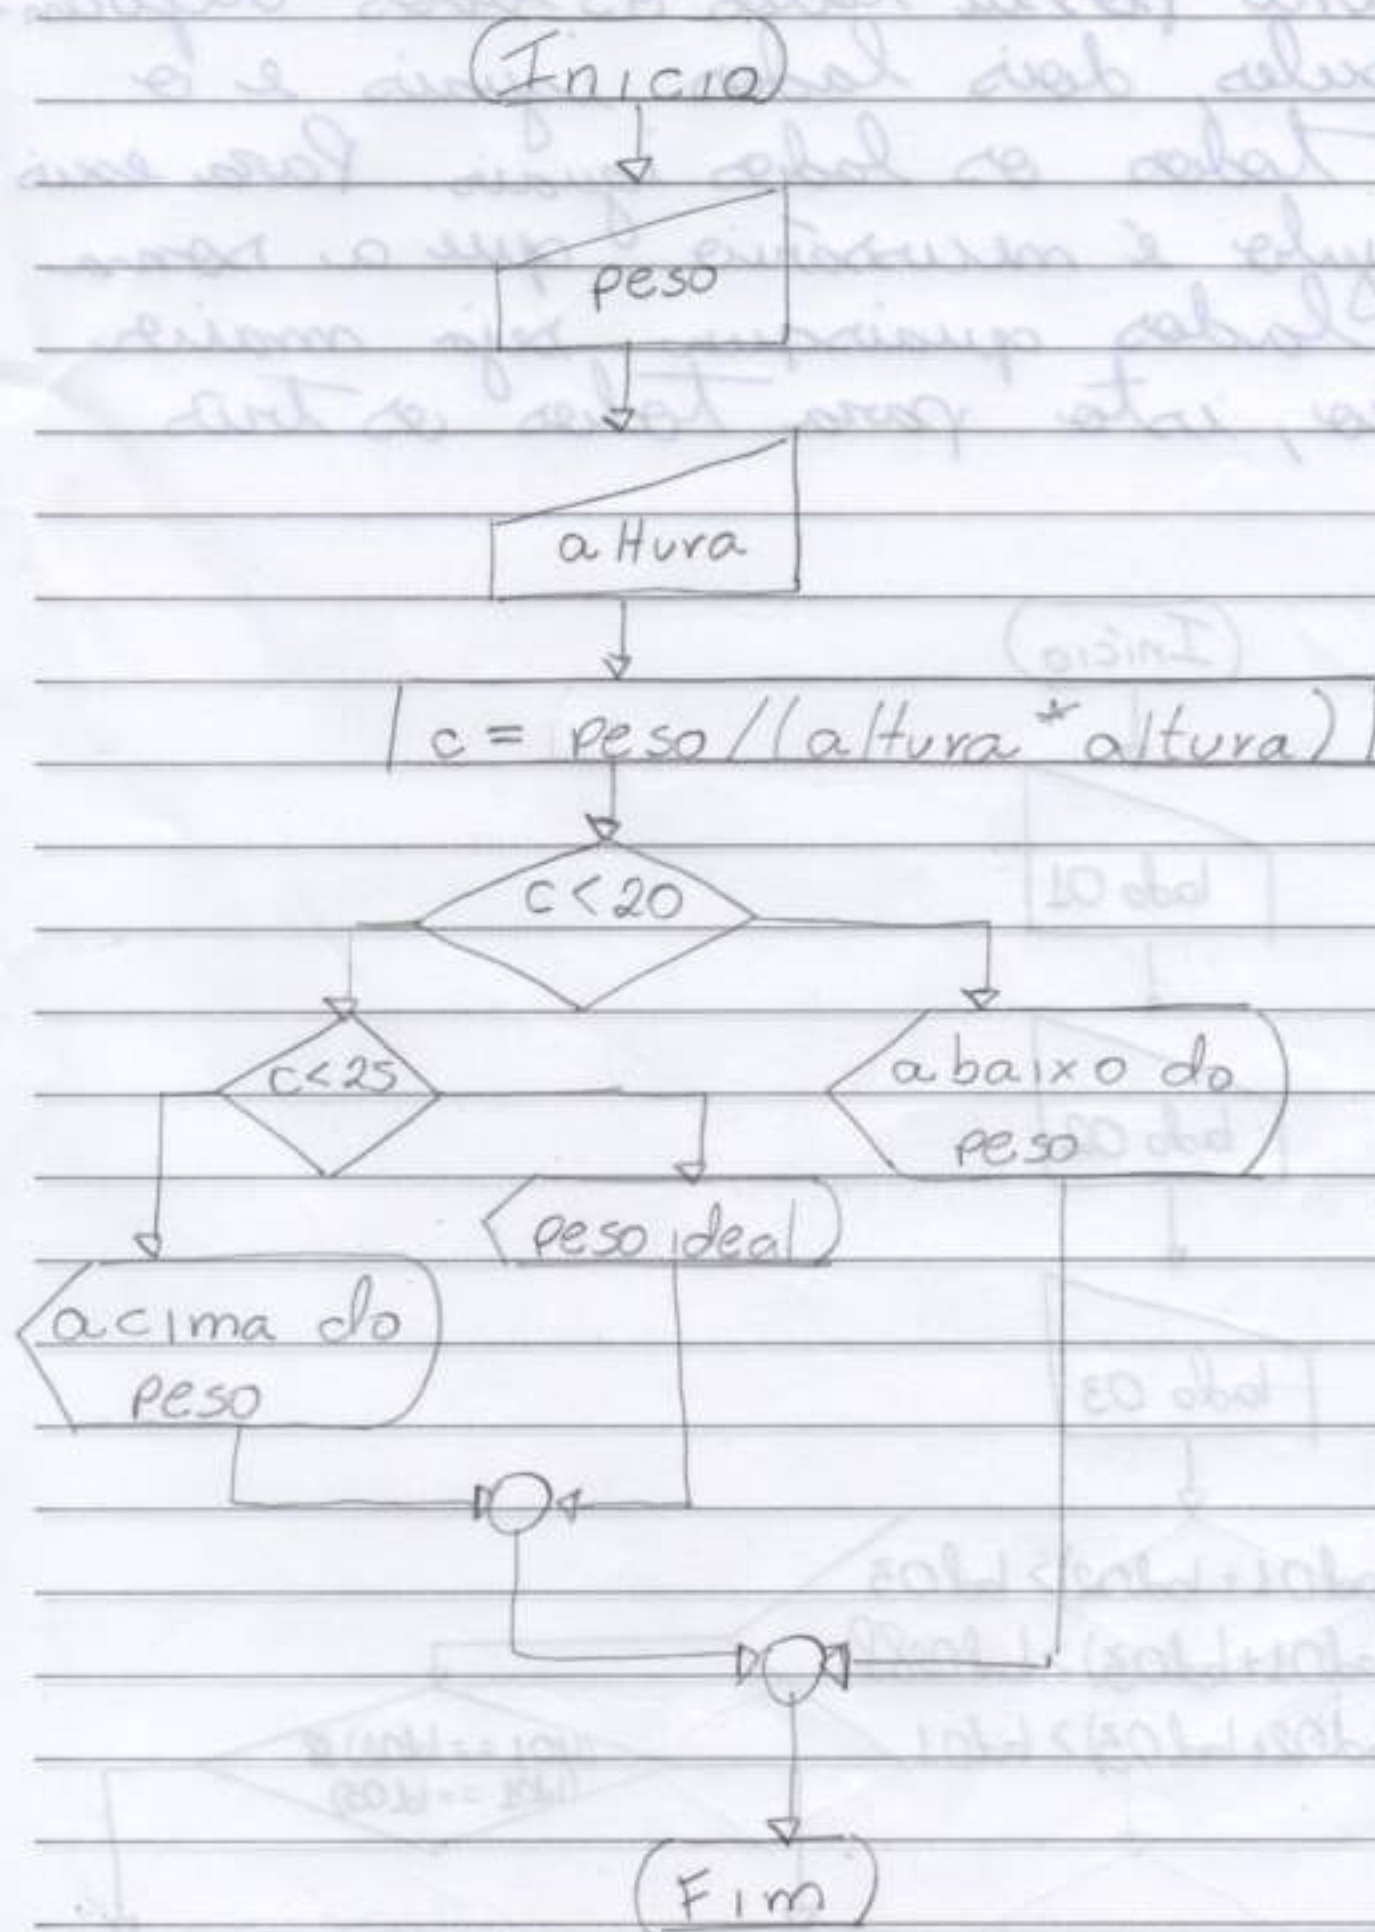 Inicio
peso
altura
c = peso/(altura * altura)
c<20
c<25
abaixo do
peso
peso ideal
acima do
peso
Fim